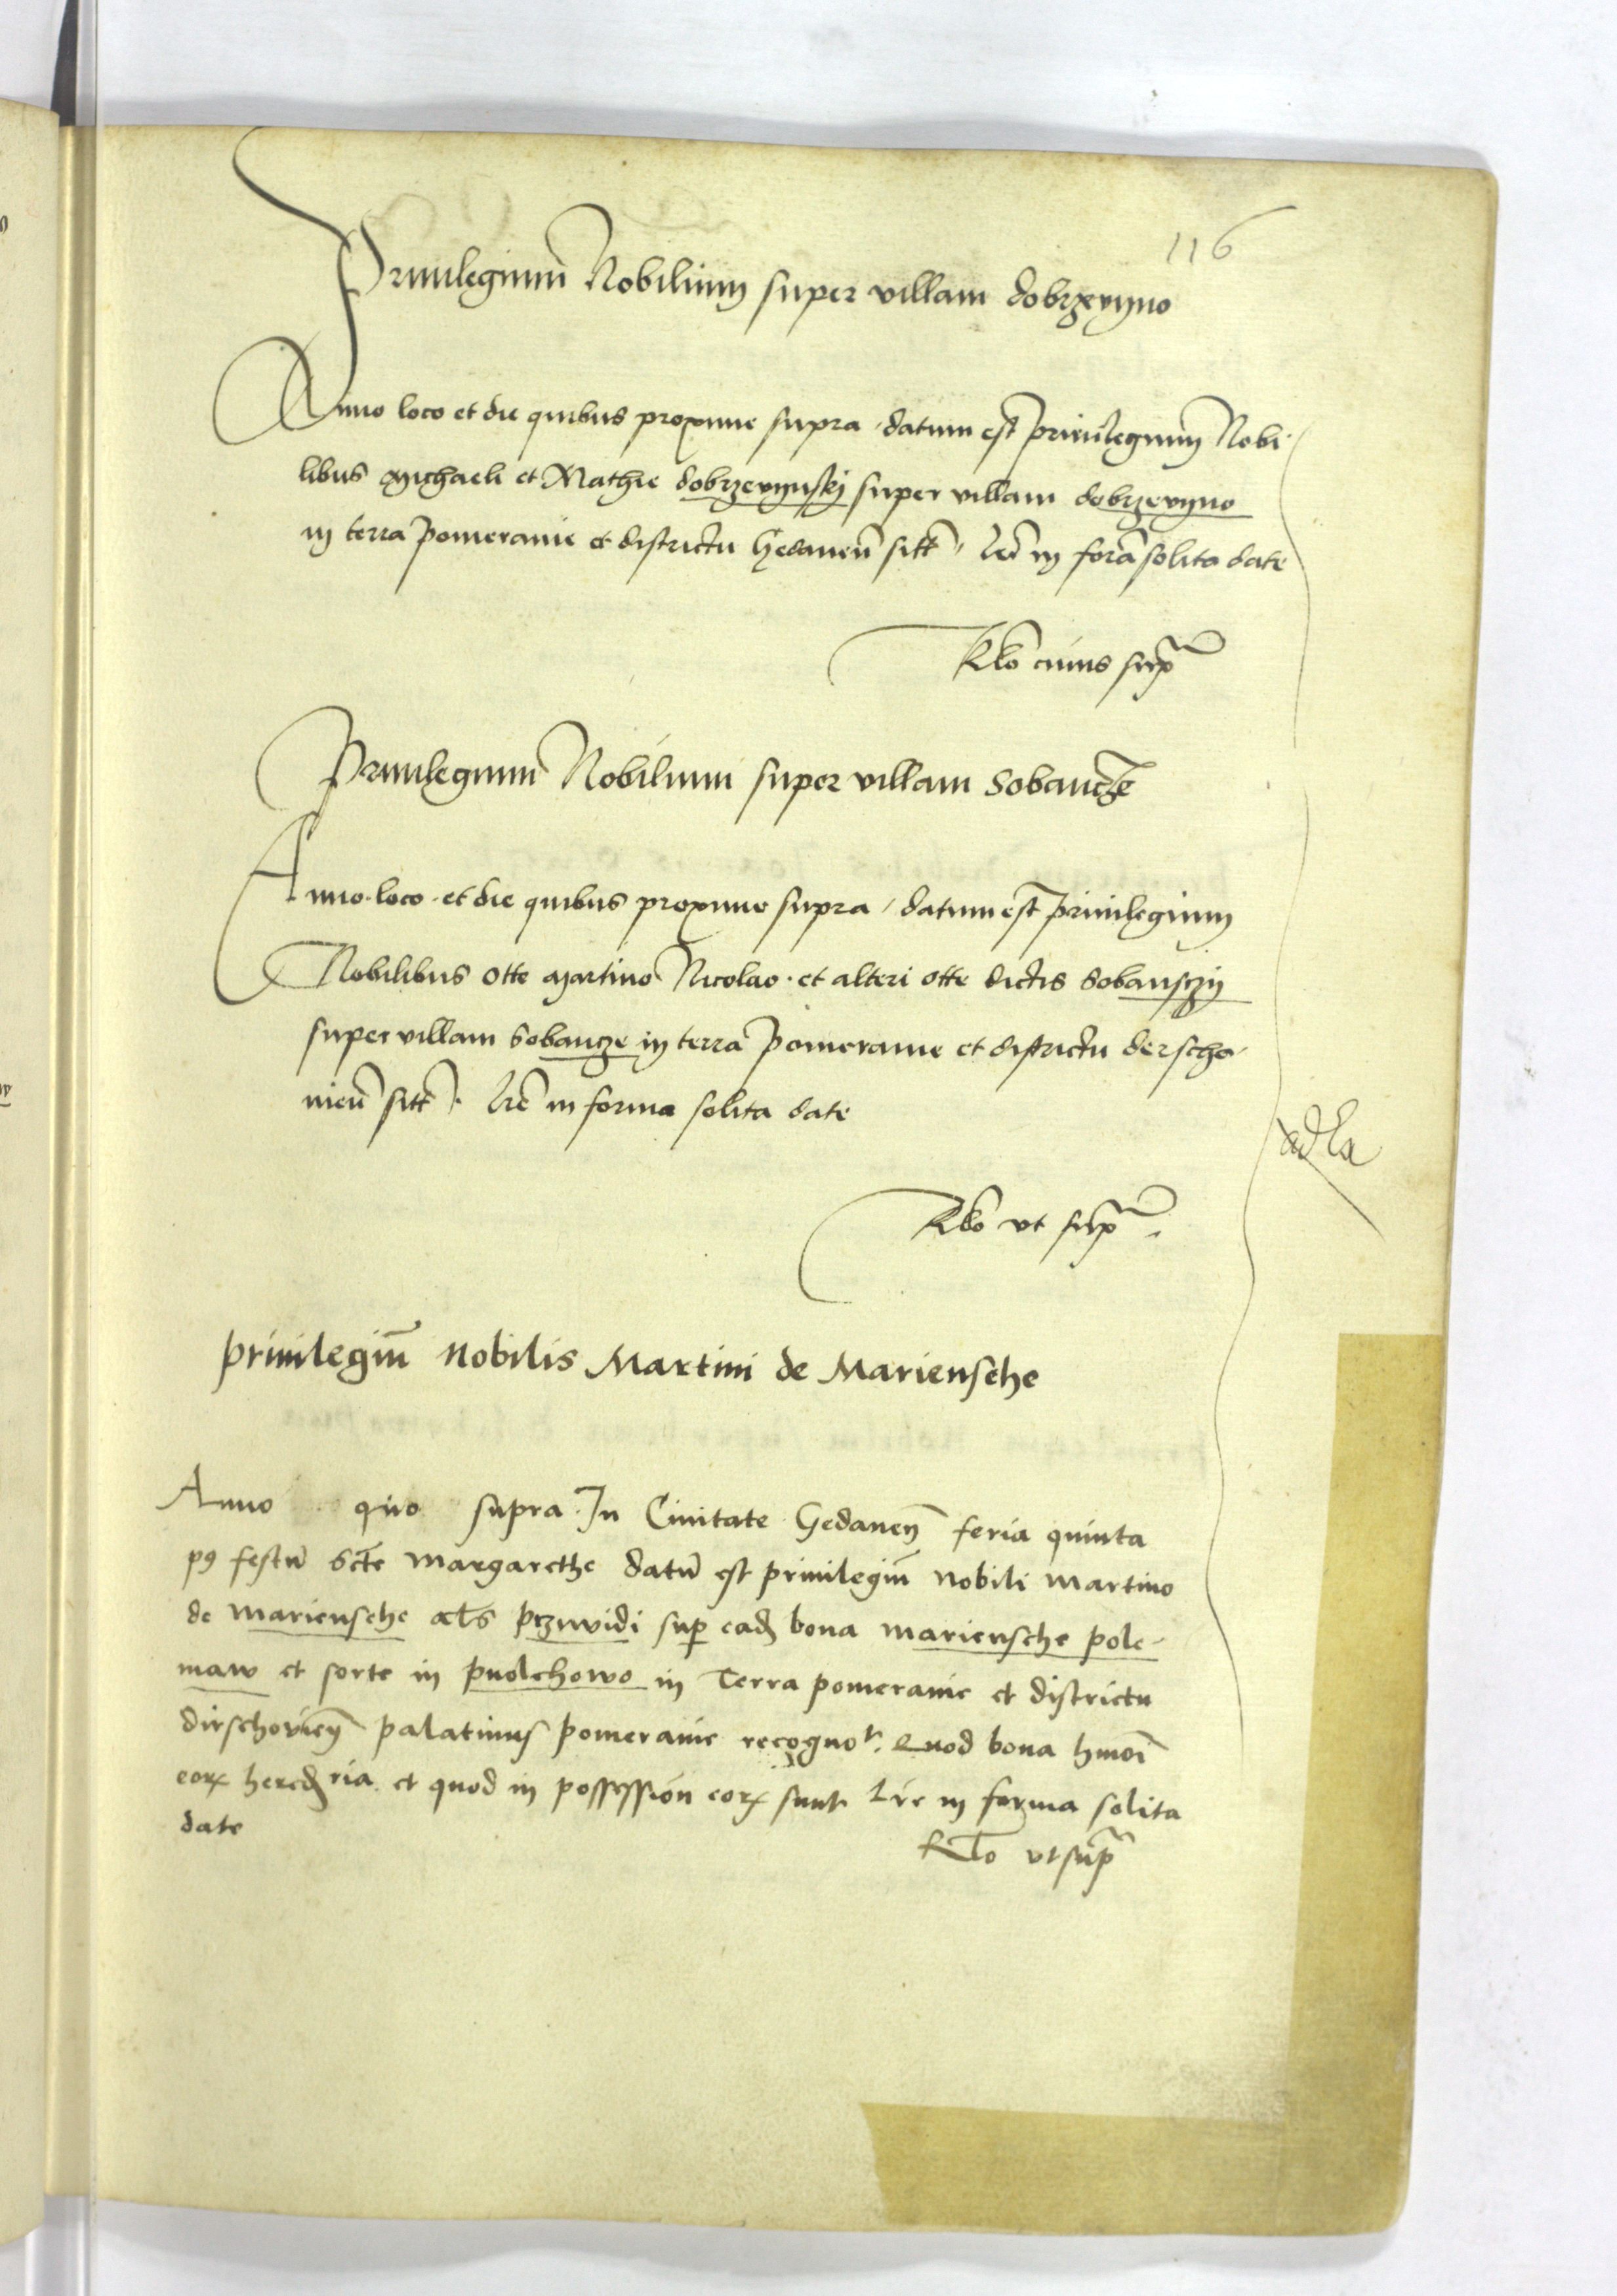 116
Priuilegium Nobilium super villam dobrzevyno
Anno loco et die quibus proxime supra datum est Priuilegium Nobi
libus Michaeli et Mathie dobrzevynskj super villam dobrzevyno
in terra Pomeranie et districtu Gedanen̄ sitt̄ lr̄e in form̄a solita date
Rl̄o cuius sup̄
Priuilegium Nobilium super villam Sobancze
Anno loco et die quibus proxime supra datum est Priuilegium
Nobilibus Otte Martino Nicolao et alteri Otte dictis Sobansczy
super villam Sobancze in terra Pomeranie et districtu derscha
nien̄ sitt̄ lr̄e in forma solita date
Rl̄o vt sup̄
priuilegiū nobilis Martini de Mariensehe
Anno quo supra In Ciuitate Gedanen̄ feria quinta
pꝰ festū Scte Margarethe datū est priuilegiū nobili Martino
de Mariensehe al̄s przividi sup̄ eadꝫ bona Mariensehe pole
maw et sorte in puolchowo in Terra pomeranie et districtu
dirschovien̄ palatinus pomeranie recognoᵗ Quod bona hmōi
eorꝝ heredꝫria et quod in possession eorꝝ sunt Lr̄e in forma solita
date
Rl̄o vt sup̄